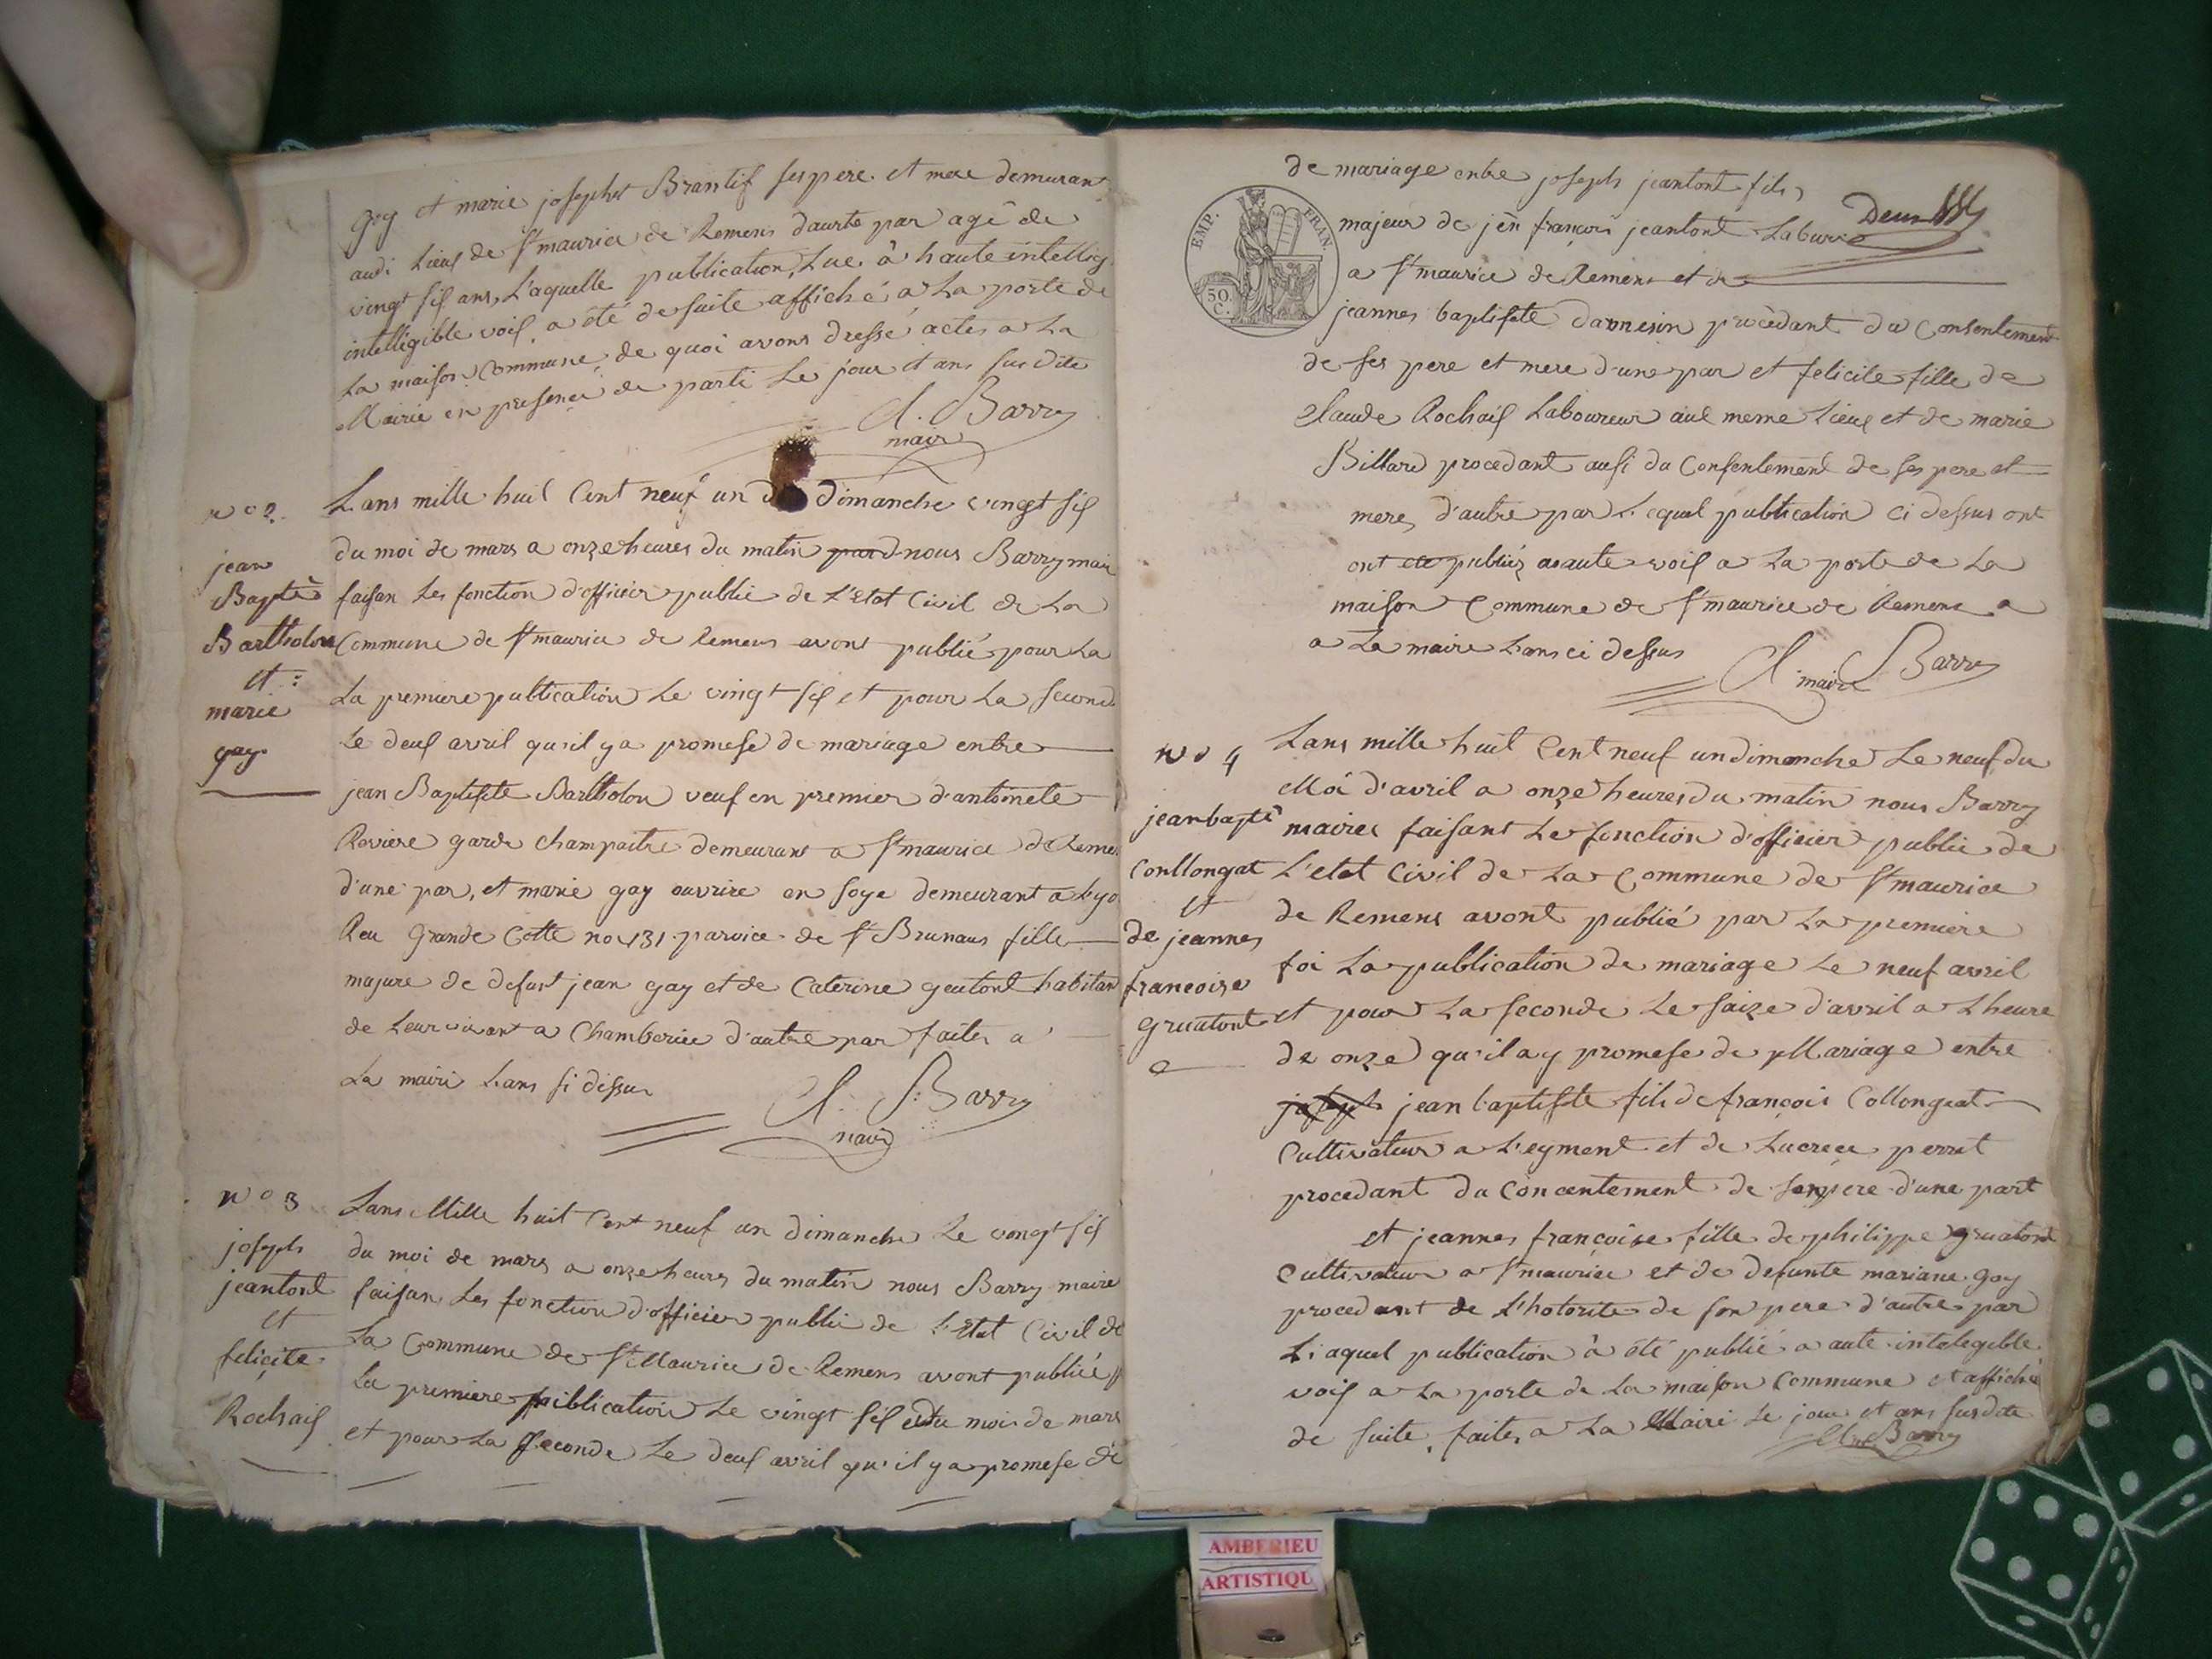 gay et marie josephet Brantif ses pere et mere demurant
audi Lieux de St maurice de Remens dautre par agé de
vingt six ans, L'aquelle publication, Lue â haute intellig
intelligible voix a été de suite affiché a La porte de
La maison Commune, de quoi avons dressé actes a La
Mairie en presence de parti Le jour et ans sus dits
Cl. Barry
maire
n° 2.
jean
Baptte
Bartholon
et :
marie
gay
L'ans mille huit Cent neuf un dimanche vingt six
du moi de mars a onze heures du matin nous Barry maire
faisan Les fonction d'officier public de L'Etat Civil de La
Commune de St maurice de Remens avont publié pour La
La premiere publication Le vingt six et pour La second
Le deux avril qu'il y a promese de mariage entre
jean Baptiste Bartholon veuf en premier d'antoinete
Roviere garde champaitre demeurant a St maurice de Remen
d'une par, et marie gay ouvrire en soye demeurant a Lyo
Reu Grande Cotte no 131 paroice de St Brunaus fille
majure de defunt jean gay et de Caterine geutont habitan
de Leur vivant a Chamberiee d'autre par faites a
La mairi L'ans si dissus
Cl. Barry
maire
n° 3
joseph
jeantont
et
felicite
Rochaix
L'ans Mille huit Cent neuf un dimanche Le vingt six
du moi de mars a onze heures du matin nous Barry maire
faisan Les fonction d'officier public de L'Etat Civil de
La Commune de St Maurice de Remens avont publiée p
La premiere publication Le vingt six du mois de mars
et pour La seconde Le deux avril qu'il y a promese de
de mariage entre joseph jeantont fils
EMP. FRAN.
50. C.
majeur de jên françois jeantont Laburie
a St maurice de Remens et de
jeannes baptiste damesin procèdant du Consentement
de ses pere et mere d'une par et felicite fille de
Claude Rochaix Laboureur aux meme Lieux et de marie
Billard procedant ausi du Consentement de ses pere et
mere, d'autre par L'equel publication ci dessus ont
ont ete publiéz a aute voix a La porte de La
maison Commune de St maurice de Remens a
a La maire L'ans ci dessus
Cl. Barry
maire
n° 4
jean baptte
Conllongat
et
de jeannes
francoise
gruatont
L'ans mille huit Cent neuf un dimanche Le neuf du
Moi d'avril a onze heures du matin nous Barry
mairee faisant Le fonction d'officier public de
L'etat Civil de La Commune de St maurice
de Remens avont publié par La premiere
foi La publication de mariage Le neuf avril
et pour La seconde Le saize d'avril a L'heure
de onze qu'il a y promese de Mariage entre
joseph jean baptiste fils de françois Collongeat
Cultivateur a L'eyment et de Lucrece perret
procedant du Concentement de son pere d'une part
et jeannes françoise fille de philippe gruatond
Cultivateur a St maurice et de defunte mariane gay
procedant de L'hotorite de son pere d'autre par
L'aquel publication à été publié a aute intelegible
voix a La porte de La maison Commune et affiché
de suite, faites a La Mairi Le jour et ans susdite
Cl. Barry
AMBERIEU
ARTISTIQU